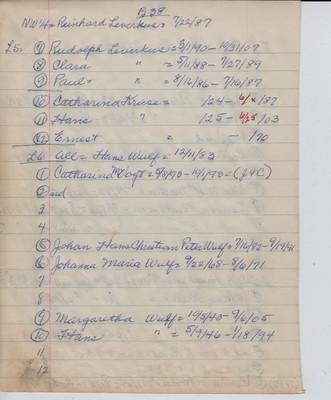 B 38
NW¼ = Reinhard Leverkus = 7/22/87
L5. ⑦ Rudolpeh Leverkus = 3/1/90 - 10/31/07
⑧ Clara " = 5/11/88 - 7/27/89
⑨ Paul = " = 8/16/86 - 7/16/87
⑩ Catharina Kruse = 124 - 4/4/87
⑪ Hans " 125 - 4/25/03
⑫ Ernest = - /90
L6. All = Hans Wulf = 12/11/83
① Catharina Vogt = 9/8/90 - 10/1/90 = (J & C)
② and
3
4
⑤ Johan Hans Christian Peter Wulf = 7/16/82 - 9/19/91
⑥ Johanna Maria Wulf = 9/22/68 - 5/6/71
7
8
⑨ Margaretha Wulf = 10/5/43 - 9/6/05
⑩ Hans " = 5/9/46 - 1/18/94
11
12